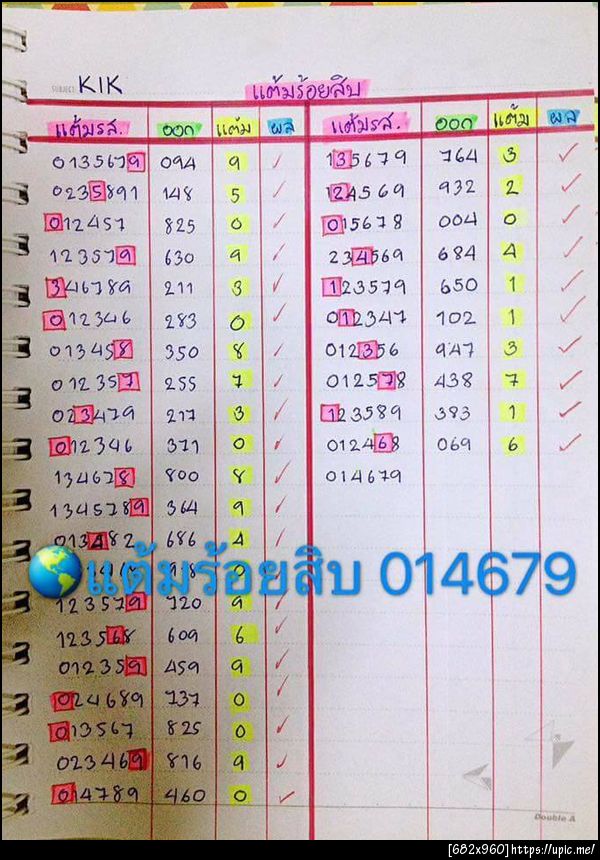 SUBJECT KIK
แต้มร้อยสิบ
แต้มรส. ออก แต้ม ผล
0135679 094 9 ✓
0235891 148 5 ✓
012457 825 0 ✓
123579 630 9 ✓
346789 211 3 ✓
012346 283 0 ✓
013458 350 8 ✓
012357 255 7 ✓
023479 217 3 ✓
012346 371 0 ✓
134678 800 8 ✓
1345789 364 9 ✓
013482 686 4 ✓
123579 720 9 ✓
123568 609 6 ✓
012359 459 9 ✓
024689 737 0 ✓
013567 825 0 ✓
023469 816 9 ✓
014789 460 0 ✓
แต้มรส. ออก แต้ม ผล
135679 764 3 ✓
124569 932 2 ✓
015678 004 0 ✓
234569 684 4 ✓
123579 650 1 ✓
012347 102 1 ✓
012356 947 3 ✓
012578 438 7 ✓
123589 383 1 ✓
012468 069 6 ✓
014679
แต้มร้อยสิบ 014679
Double A
[682x960]https://upic.me/